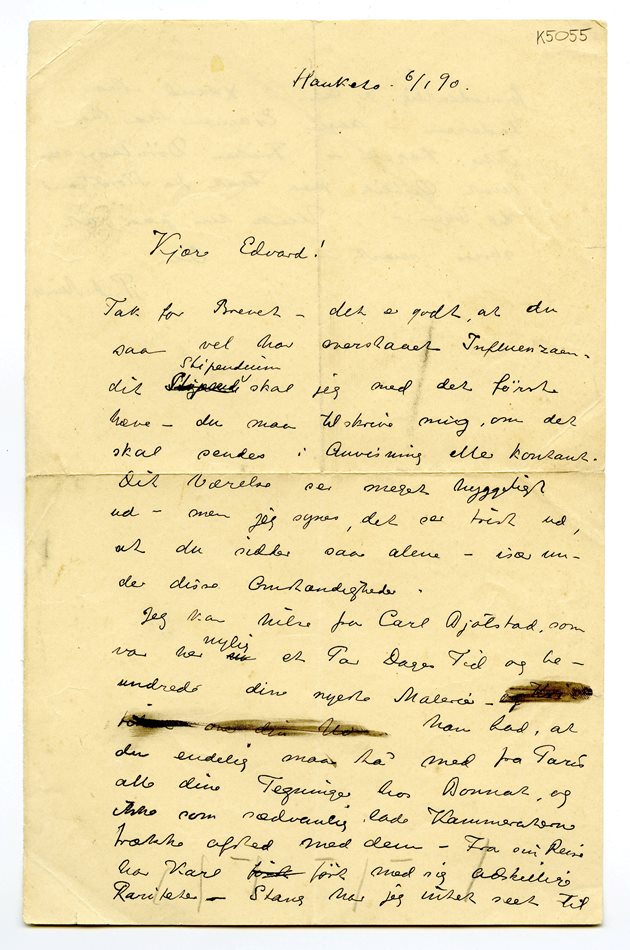 K5055
Hauketo. 6/1 90.
Kjære Edvard!
Tak for Brevet – det er godt, at du
saa vel har overstaaet Influenzaen.
Stipendium
dit skal jeg med det første
hæve – du maa tilskrive mig, om det
skal sendes i Anvisning eller kontant.
Dit Værelse ser meget hyggeligt
ud – men jeg synes, det ser trist ud,
at du sidder saa alene – især un-
der disse Omstændigheder.
Jeg kan hilse fra Carl Bjølstad, som
nylig
var her et Par Dages Tid og be-
undrede dine nyeste Malerier –
han bad, at
du endelig maa ha' med fra Paris
alle dine Tegninger hos Bonnat, og
ikke som sædvanlig lade Kammeraterne
trække afsted med dem – Fra sin Reise
har Karl ført med sig adskillige
Rariteter – Stang har jeg intet seet til